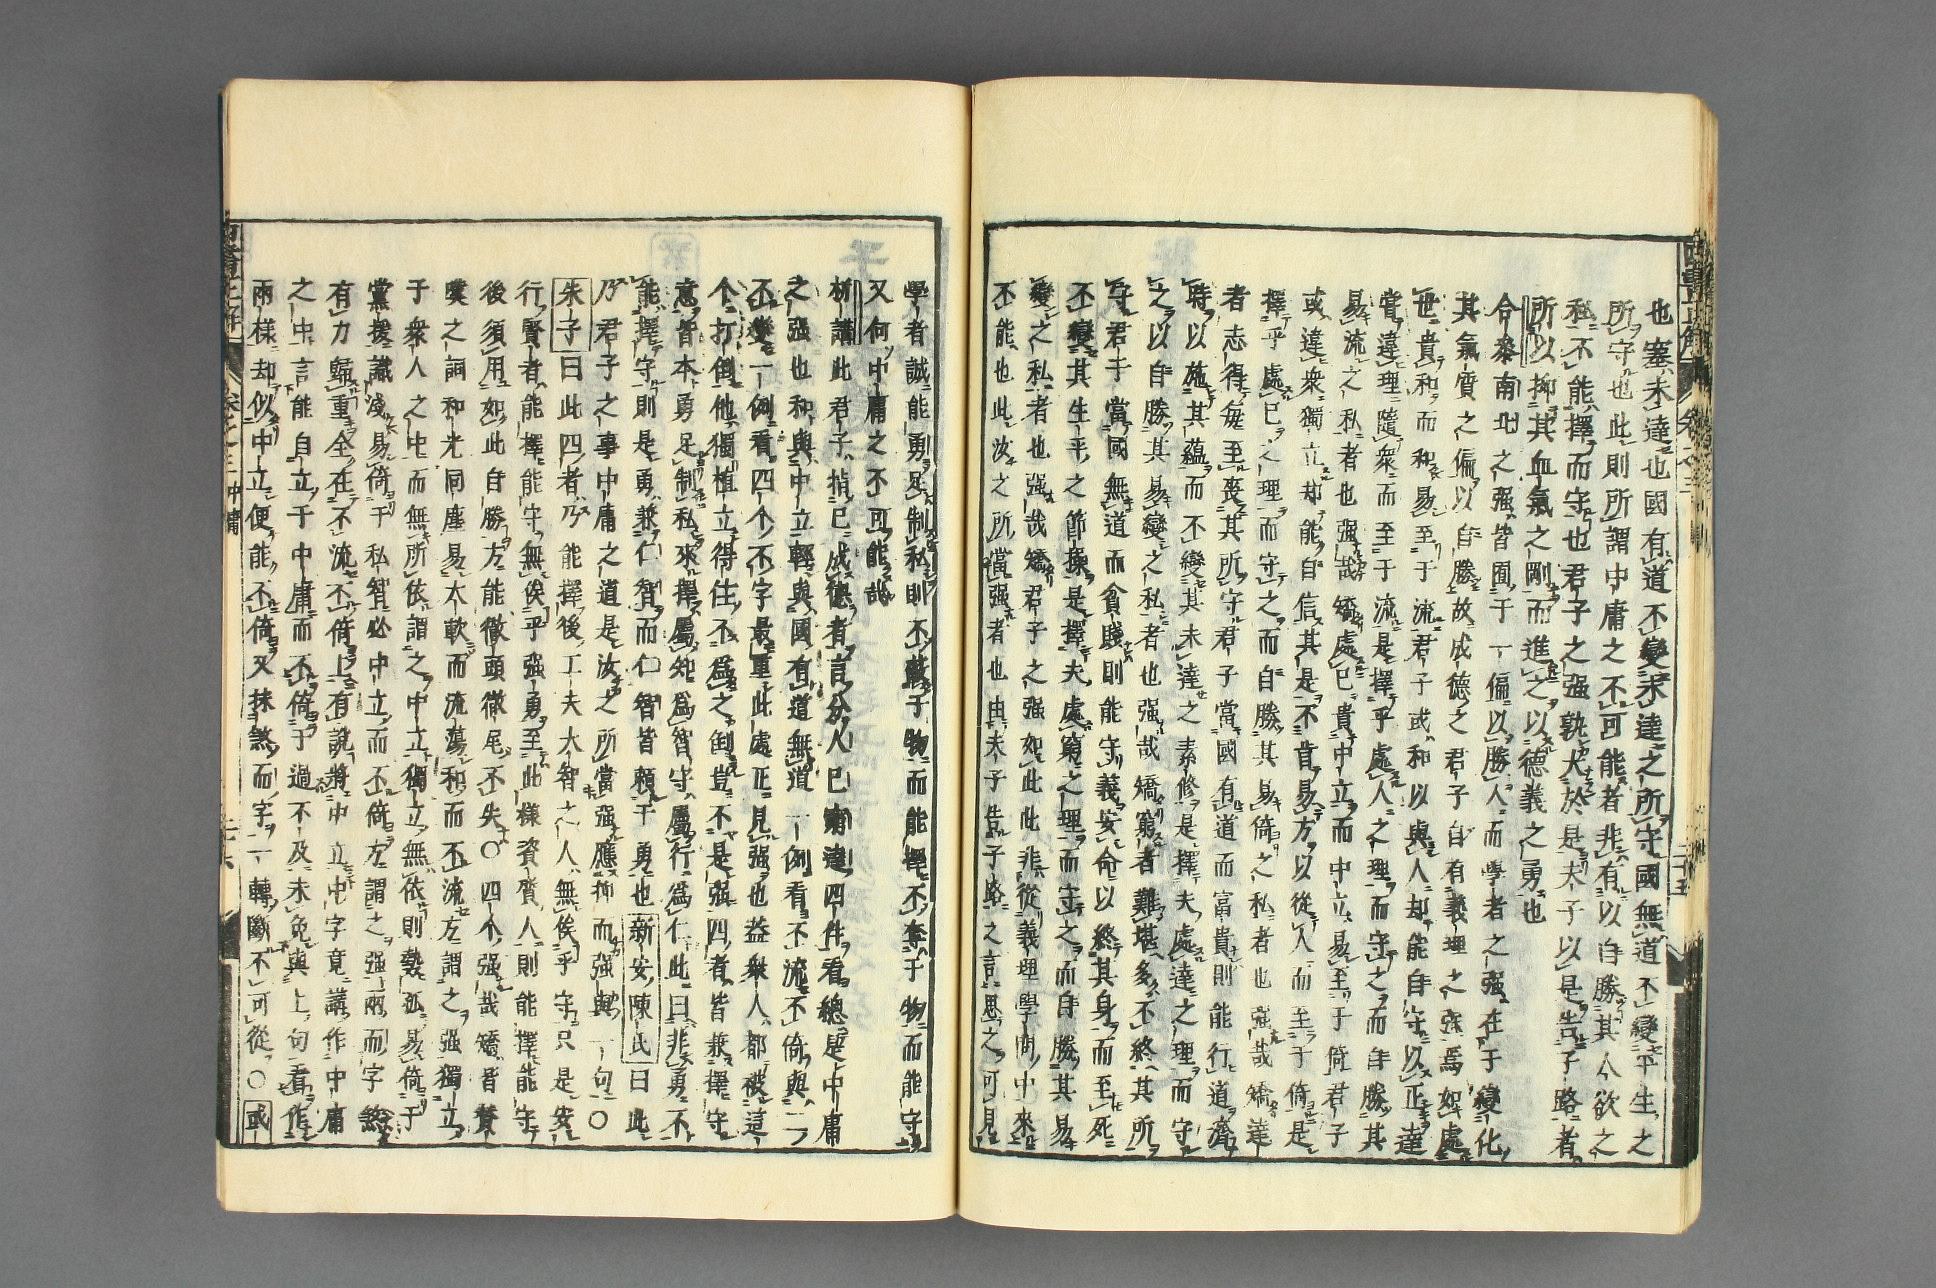 也塞未達也國有道不變未達之所守國無道不變平生之
所守也此則所謂中庸之不可能者非有以自勝其人欲之
私不能擇而守也君子之强孰大於是夫子以是告子路者
所以抑其血氣之剛而進之以德義之勇也
合參南北之强皆囿于一偏以勝人而學者之强在于變化
其氣質之偏以自勝故成德之君子自有義理之强焉如處
世貴和而和易至于流君子或和以與人却能自守以正達
嘗違理隨衆而至于流是擇乎處人之理而守之而自勝其
易流之私者也强哉矯處已貴中立而中立易至于倚君子
或違衆獨立却能自信其是不肯易方以從人而至于倚是
擇乎處已之理而守之而自勝其易倚之私者也强哉矯達
者志得每至喪其所守君子當國有道而富貴則能行道濟
時以施其蘊而不變其未達之素修是擇夫處達之理而守
之以自勝其易變之私者也强哉矯窮者難堪多不終其所
守君子當國無道而貧賤則能守義安命以終其身而至死
不變其生平之節操是擇夫處窮之理而守之而自勝其易
變之私者也强哉矯君子之强如此此非從義理學問中來
不能也此汝之所當强者也由夫子告子路之言思之可見
學者誠能勇足制私則不軟于物而能擇不奪于物而能守
又何中庸之不可能哉
析講此君子指已成德者言分人已窮達四件看總是中庸
之强也和與中立輕與國有道無道一例看不流不倚與二
不變一例看四个不字最重此處正見强也益衆人都被這
个打倒他獨植立得住不爲之倒豈不是强四者皆兼擇守
意皆本勇足制私來擇屬知爲智守屬行爲仁此曰非勇不
能擇守則是勇兼仁智而仁智皆賴于勇也新安陳氏曰此
乃君子之事中庸之道是汝之所當强應抑而强與一句〇
朱子曰此四者乃能擇後工夫大智之人無俟乎守只是安
行賢者能擇能守無俟乎强勇至此樣資質人則能擇能守
後須用如此自勝方能徹頭徹尾不失〇四个强哉矯皆贊
嘆之詞和光同塵易太軟而流蕩和而不流方謂之强獨立
于衆人之中而無所依謂之中立獨立無依則勢孤易倚于
黨援識淺易倚于私智必中立而不倚方謂之强兩而字煞
有力歸重全在不流不倚上有說將中立中字竟講作中庸
之中言能自立于中庸而不倚于過不及未免與上句看作
兩樣却似中立便能不倚又抹煞而字一轉斷不可從〇或